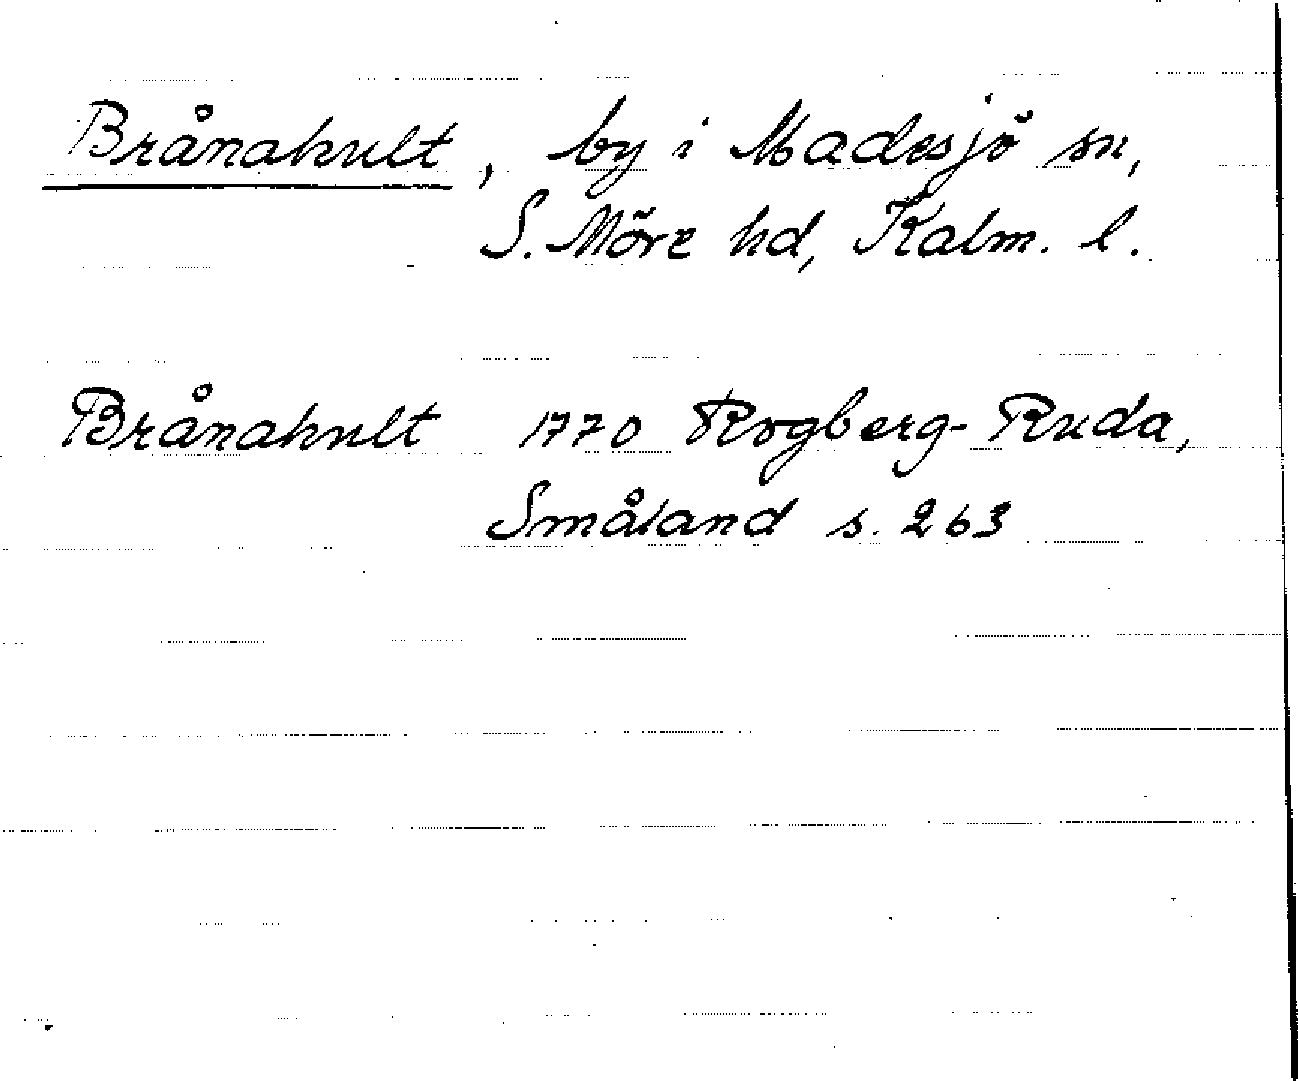 Brånahult, by i Madesjö sn,
S. Möre hd, Kalm. l.
Brånahult 1770 Rogberg-Ruda,
Småland s. 263